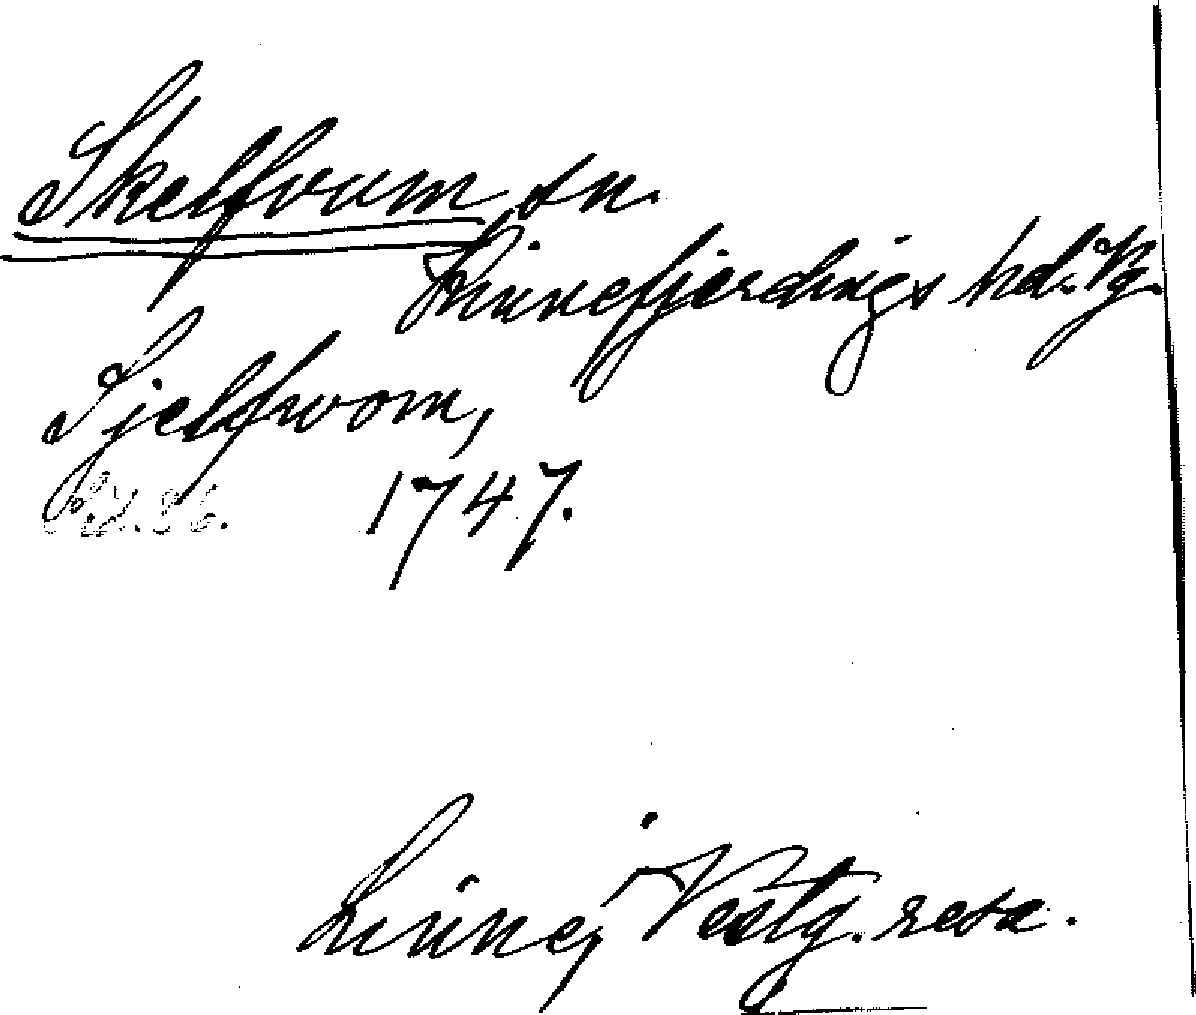 Skelfvum sn.
Kinnefjerdings hd. Vg.
Sjelfwom,
1747.
Linné, Vestg. resa.